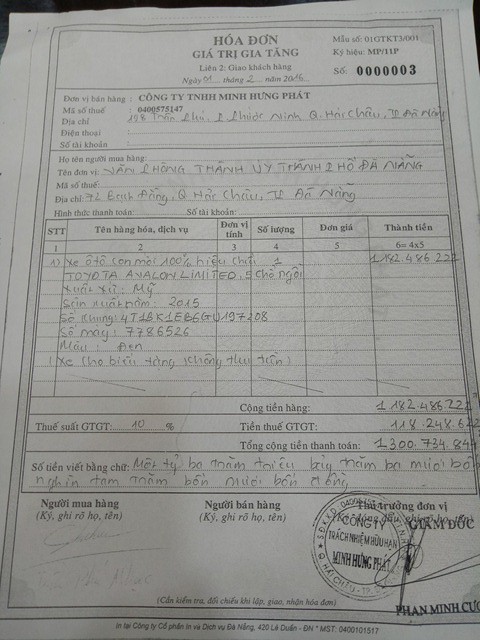 HÓA ĐƠN
GIÁ TRỊ GIA TĂNG
Liên 2: Giao khách hàng
Ngày 01 tháng 2 năm 2016
Mẫu số: 01GTKT3/001
Ký hiệu: MP/11P
Số: 0000003
Đơn vị bán hàng: CÔNG TY TNHH MINH HƯNG PHÁT
Mã số thuế: 0400575147
Địa chỉ 198 Q. Hải Châu, TP Đà Nẵng
Điện thoại:
Số tài khoản:
Họ tên người mua hàng:
Tên đơn vị: VĂN PHÒNG THÀNH ỦY THÀNH PHỐ ĐÀ NẴNG
Mã số thuế:
Địa chỉ: 72 Bạch Đằng, Q Hải Châu, TP Đà Nẵng
Hình thức thanh toán: Số tài khoản:
STT Tên hàng hóa, dịch vụ Đơn vị tính Số lượng Đơn giá Thành tiền
1 2 3 4 5 6= 4x5
1) Xe ôtô con mới 100% hiệu 1 1 182.486.222
TOYOTA AVALON LIMITED, 5 chỗ ngồi
Xuất xứ: Mỹ
Sản xuất năm: 2015
Số khung: 4T1BK1EB6GU197208
Số máy: 7786526
Màu: Đen
(Xe cho biếu tặng không thu tiền)
Cộng tiền hàng: 1 182.486.222
Thuế suất GTGT: 10 % Tiền thuế GTGT: 118.248.622
Tổng cộng tiền thanh toán: 1 300.734.844
Số tiền viết bằng chữ: Một tỷ ba trăm triệu bảy trăm ba mươi bốn
nghìn tám trăm bốn mươi bốn đồng
Người mua hàng
(Ký, ghi rõ họ, tên)
Người bán hàng
(Ký, ghi rõ họ, tên)
Thủ trưởng đơn vị
GIÁM ĐỐC
CÔNG TY
TRÁCH NHIỆM HỮU HẠN
MINH HƯNG PHÁT
PHAN MINH CƯ
(Cần kiểm tra, đối chiếu khi lập, giao, nhận hóa đơn)
In tại Công ty Cổ phần In và Dịch vụ Đà Nẵng, 420 Lê Duẩn - ĐN * MST: 0400101517